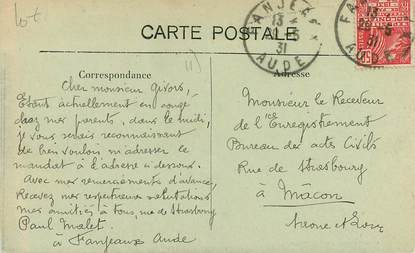 CARTE POSTALE
Correspondance
Adresse
FANJEAUX
13
5
31
AUDE
Cher monsieur Givors,
Etant actuellement en congé
chez mes parents, dans le midi,
je vous serais reconnaissant
de bien vouloir m'adresser le
mandat à l'adresse ci dessous.
Avec mes remerciements d'avance,
Recevez mes respectueuses salutations
mes amitiés à tous, rue de Strasbourg
Paul Malet
à Fanjeaux Aude
Monsieur le Receveur
de l'Enregistrement
Bureau des actes Civils
Rue de Strasbourg
à Mâcon
Saone et Loire